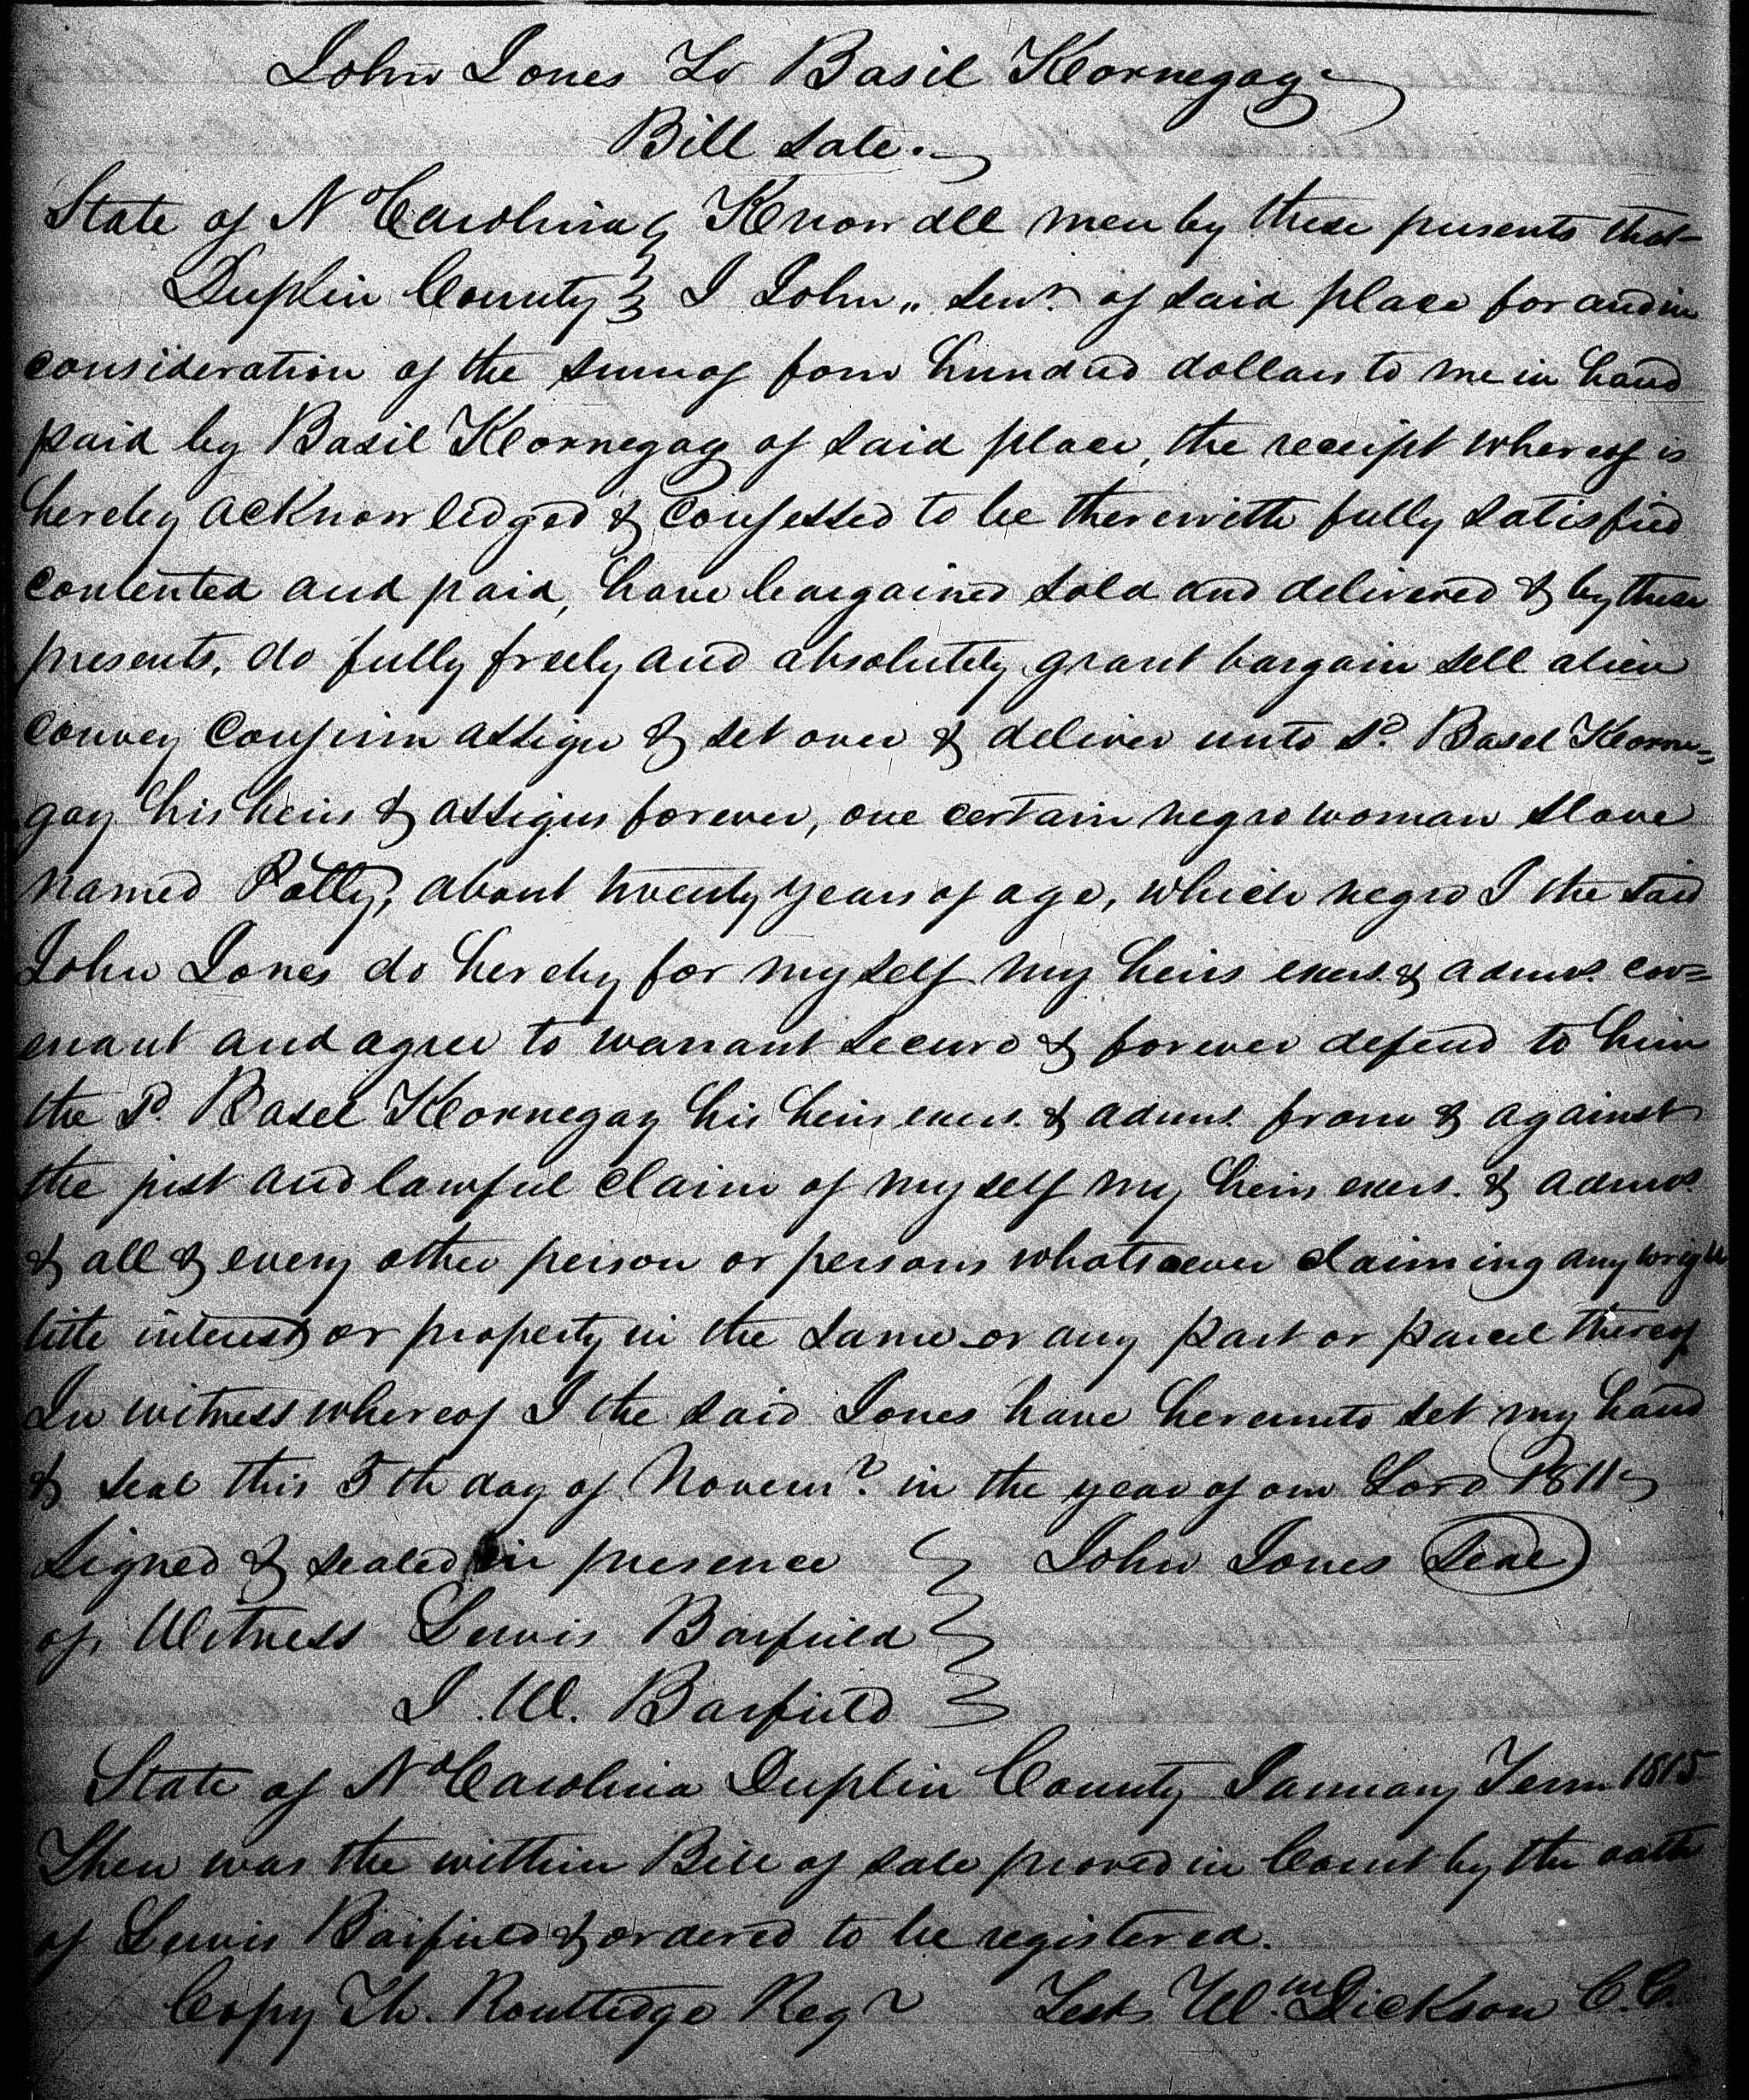 John Jones To Basil Kornegay
Bill Sale.
State of No Carolina } Know all men by these presents that
Duplin County } I John " Senr. of said place for and in
consideration of the sum of four hundred dollars to me in hand
paid by Basil Kornegay of said place, the receipt whereof is
hereby acknowledged & confessed to be therewith fully satisfied
contented and paid, have bargained sold and delivered & by these
presents, do fully freely and absolutely grant bargain sell alien
convey confirm assign & set over & deliver unto sd. Basel Korne=
gay his heirs & assigns forever, one certain negro woman slave
named Patty, about twenty years of age, which negro I the said
John Jones do hereby for myself my heirs exers. & admrs. cov=
enant and agree to warrant secure & forever defend to him
the sd. Basel Kornegay his heirs exers. & admrs. from & against
the just and lawful claim of myself my heirs exers. & admrs.
& all & every other person or persons whatsoever claiming any wright
title interest or property in the same or any part or parcel thereof
In witness whereof I the said Jones have hereunto set my hand
& seal this 5th day of Novemr. in the year of our Lord 1811
Signed & sealed in presence } John Jones Seal
of Witness Lewis Barfield
J. W. Barfield
State of No Carolina Duplin County January Term 1815
Then was the within Bill of sale proved in Court by the oath
of Lewis Barfield & ordered to be registered.
Copy Th. Routledge Regr Test Wm. Dickson C.C.